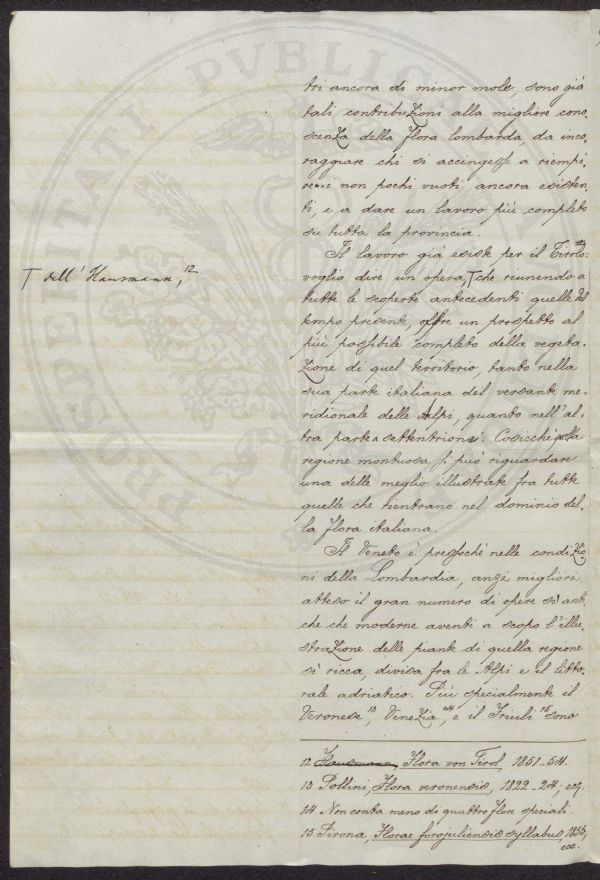 tri ancora di minor mole, sono già
tali contribuzioni alla migliore cono,
scenza della flora lombarda, da inco,
raggiare chi si accingesse a riempi,
re i non pochi vuoti ancora esisten,
ti, e a dare un lavoro più completo
su tutta la provincia.
Il lavoro già esiste per il Tirolo:
voglio dire un opera, T che riunendo a
T dell' Hausmann, 12
tutte le scoperte antecedenti quelle del
tempo presente, offre un prospetto al
più possibile completo della vegeta,
zione di quel territorio, tanto nella
sua parte italiana del versante me,
ridionale delle Alpi, quanto nell'al,
tra parte settentrion. Cosicchè quella
regione montuosa si può riguardare
una delle meglio illustrate fra tutte
quelle che rientrano nel dominio del,
la flora italiana.
Il Veneto è pressochè nelle condizio,
ni della Lombardia, anzi migliori,
atteso il gran numero di opere sì anti,
che che moderne aventi a scopo l'illu,
strazione delle piante di quella regione
sì ricca, divisa fra le Alpi e il litto,
rale adriatico. Più specialmente il
Veronese 13, Venezia 14, e il Friuli 15 sono
12 Hausmann, Flora von Tirol, 1851-54.
13 Pollini, Flora veronensis, 1822-24;
14 Non conta meno di quattro flore speciali.
15 Pirona, Florae forojuliensis syllabus, 1855,
ecc.